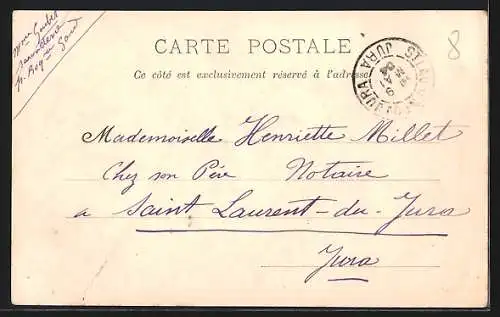 Mme
CARTE POSTALE
Ce côté est exclusivement réservé à l'adresse
JURA
8
Mademoiselle Henriette Millet
Chez son Père Notaire
a Saint Laurent-du-Jura
Jura